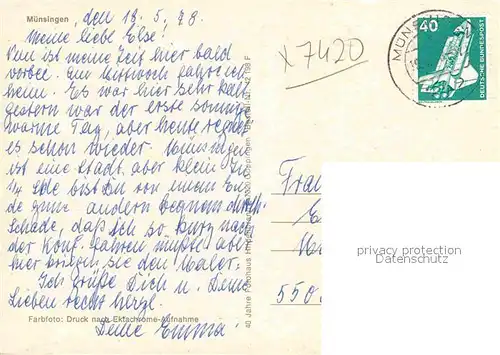 Münsingen, den 18.5.78.
Meine liebe Else!
Nun ist meine Zeit hier bald
vorbei. Am Mittwoch fahre ich
heim. Es war hier sehr kalt
gestern war der erste sonnige
warme Tag, aber heute regnet
es schon wieder. Münsingen
ist eine Stadt, aber klein. In
1/4 Stde bist Du von einem En-
de zum andern bequem durch.
Schade, daß ich so kurz nach
der Konf. fahren mußte, aber
hier kriegen sie den Maler.
Ich grüße Dich u. Deine
Lieben recht herzl.
Deine Emma.
Farbfoto: Druck nach Ektachrome-Aufnahme
40 Jahre Fotohaus
x 7420
MÜNS
40
DEUTSCHE BUNDESPOST
Frau
550
privacy protection